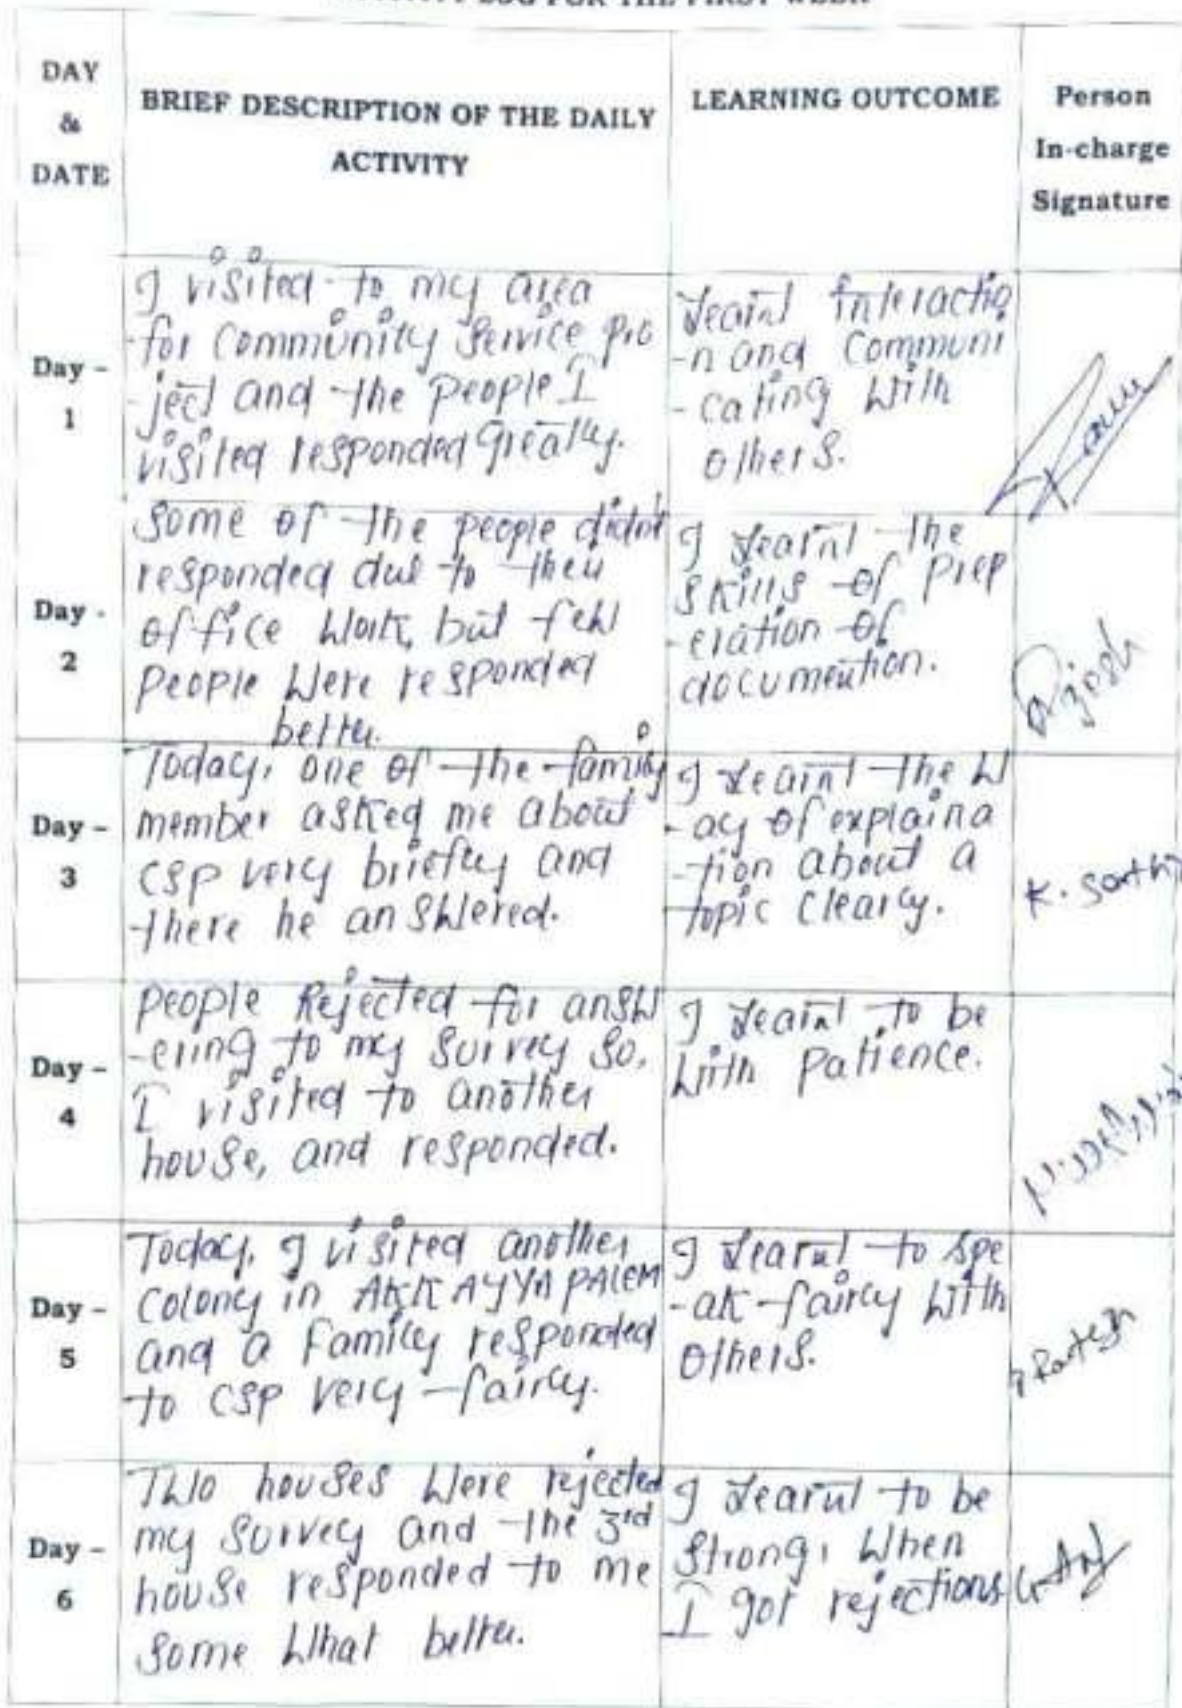 LOG FOR THE FIRST WEEK
DAY
&
DATE
BRIEF DESCRIPTION OF THE DAILY
ACTIVITY
LEARNING OUTCOME
Person
In-charge
Signature
Day -
1
I visited to my area
for Community Service pro
-ject and the people I
visited responded greatly.
Learnt Interactio
-n and Communi
-cating with
others.
Day -
2
Some of the people didnt
responded due to their
office work, but few
people were responded
better.
I learnt the
skills of prep
-eration of
documention.
Day -
3
Today, one of the family
member asked me about
CSP very briefly and
there he answered.
I learnt the w
-ay of explaina
-tion about a
topic clearly.
K.
Day -
4
people Rejected for answ
-ering to my survey so,
I visited to another
house, and responded.
I learnt to be
with patience.
Day -
5
Today, I visited another
colony in AKKAYYAPALEM
and a family responded
to CSP very fairly.
I learnt to spe
-ak fairly with
others.
Day -
6
Two houses were rejected
my survey and the 3rd
house responded to me
some what better.
I learnt to be
strong, when
I got rejections